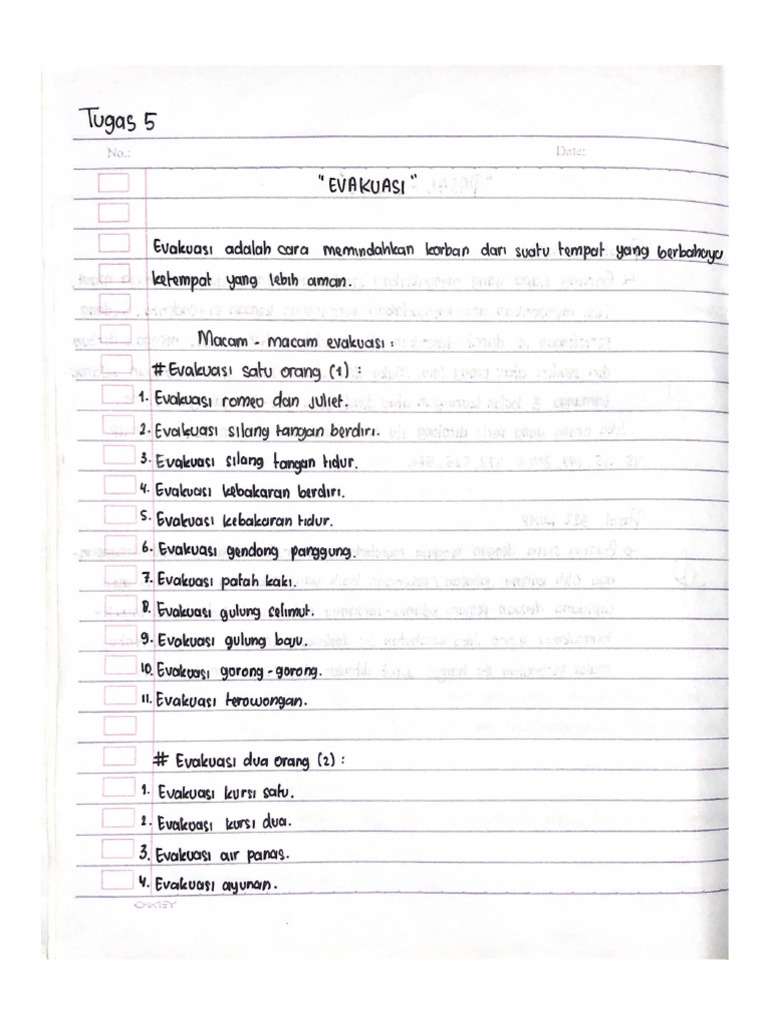 Tugas 5
No.:
Date:
"EVAKUASI"
Evakuasi adalah cara memindahkan korban dari suatu tempat yang berbahaya
ketempat yang lebih aman.
Macam - macam evakuasi :
# Evakuasi satu orang (1) :
1. Evakuasi romeo dan juliet.
2. Evakuasi silang tangan berdiri.
3. Evakuasi silang tangan tidur.
4. Evakuasi kebakaran berdiri.
5. Evakuasi kebakaran tidur.
6. Evakuasi gendong panggung.
7. Evakuasi patah kaki.
8. Evakuasi gulung selimut.
9. Evakuasi gulung baju.
10. Evakuasi gorong - gorong.
11. Evakuasi terowongan.
# Evakuasi dua orang (2) :
1. Evakuasi kursi satu.
2. Evakuasi kursi dua.
3. Evakuasi air panas.
4. Evakuasi ayunan.